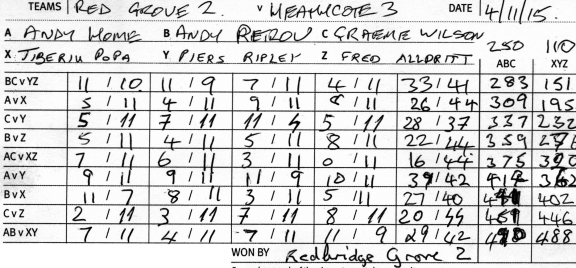 TEAMS RED GROVE 2. V HEATHCOTE 3 DATE 4/11/15.
A ANDY HOME B ANDY PETROU C GRAEME WILSON 250 110
X. TIBERIU POPA Y PIERS RIPLEY Z FRED ALLDRITT ABC XYZ
BCvYZ 11 / 10 11 / 9 7 / 11 4 / 11 33 / 41 283 151
AvX 5 / 11 4 / 11 9 / 11 8 / 11 26 / 44 309 195
CvY 5 / 11 7 / 11 11 / 4 5 / 11 28 / 37 337 232
BvZ 5 / 11 4 / 11 5 / 11 8 / 11 22 / 44 359 276
ACvXZ 7 / 11 6 / 11 3 / 11 0 / 11 16 / 44 375 320
AvY 9 / 11 9 / 11 11 / 9 10 / 11 39 / 42 362
BvX 11 / 7 8 / 11 3 / 11 5 / 11 27 / 40 402
CvZ 2 / 11 3 / 11 7 / 11 8 / 11 20 / 44 446
ABvXY 7 / 11 4 / 11 7 / 11 11 / 9 29 / 42 488
WON BY Redbridge Grove 2